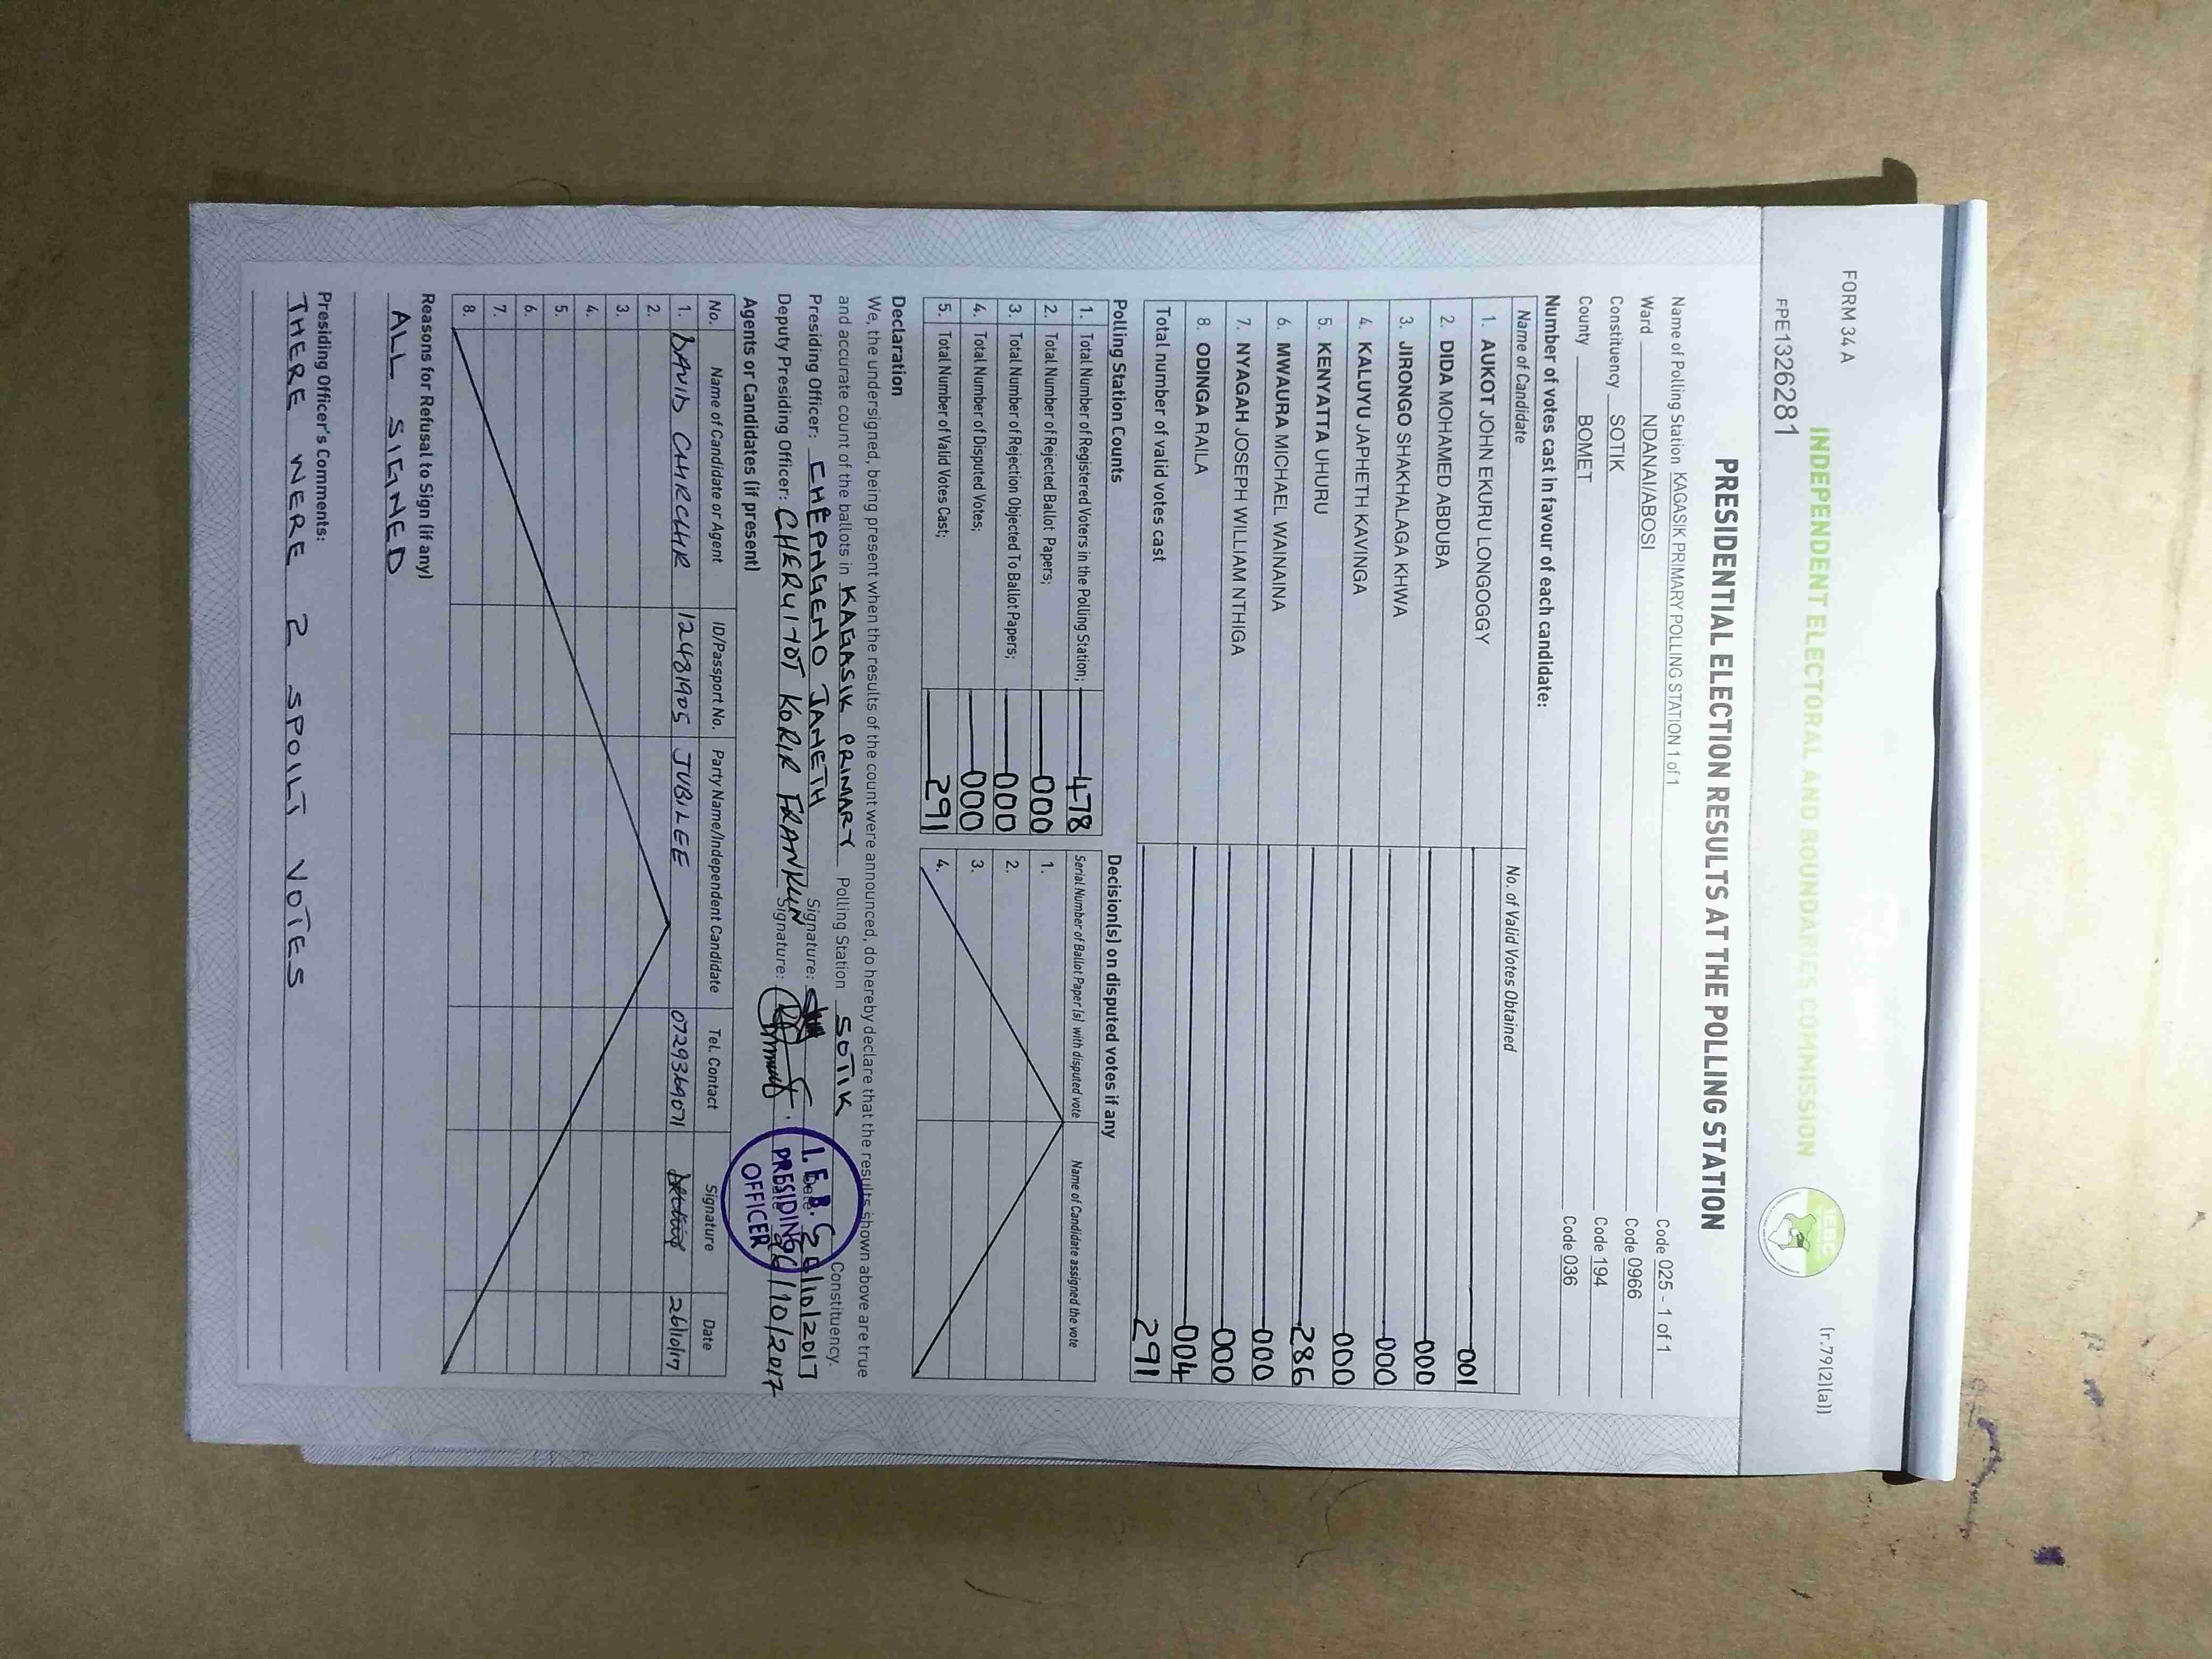 FORM 34 A
(r.79(2)(a))
INDEPENDENT ELECTORAL AND BOUNDARIES COMMISSION
IEBC
FPE1326281
PRESIDENTIAL ELECTION RESULTS AT THE POLLING STATION
Name of Polling Station KAGASIK PRIMARY POLLING STATION 1 of 1 Code 025 - 1 of 1
Ward NDANAI/ABOSI Code 0966
Constituency SOTIK Code 194
County BOMET Code 036
Number of votes cast in favour of each candidate:
Name of Candidate No. of Valid Votes Obtained
1. AUKOT JOHN EKURU LONGOGGY 001
2. DIDA MOHAMED ABDUBA 000
3. JIRONGO SHAKHALAGA KHWA 000
4. KALUYU JAPHETH KAVINGA 000
5. KENYATTA UHURU 286
6. MWAURA MICHAEL WAINAINA 000
7. NYAGAH JOSEPH WILLIAM NTHIGA 000
8. ODINGA RAILA 004
Total number of valid votes cast 291
Polling Station Counts
1. Total Number of Registered Voters in the Polling Station; 478
2. Total Number of Rejected Ballot Papers; 000
3. Total Number of Rejection Objected To Ballot Papers; 000
4. Total Number of Disputed Votes; 000
5. Total Number of Valid Votes Cast; 291
Decision(s) on disputed votes if any
Serial Number of Ballot Paper (s) with disputed vote Name of Candidate assigned the vote
1.
2.
3.
4.
Declaration
We, the undersigned, being present when the results of the count were announced, do hereby declare that the results shown above are true
and accurate count of the ballots in KAGASIK PRIMARY Polling Station SOTIK Constituency.
Presiding Officer: CHEPNGENO JANETH Signature: Date 26/10/2017
Deputy Presiding Officer: CHERUIYOT KORIR FRANKLIN Signature: Date 26/10/2017
I.E.B.C
PRESIDING
OFFICER
Agents or Candidates (if present)
No. Name of Candidate or Agent ID/Passport No. Party Name/Independent Candidate Tel. Contact Signature Date
1. DAVID CHIRCHIR 12481905 JUBILEE 0729369071 26/10/17
2.
3.
4.
5.
6.
7.
8.
Reasons for Refusal to Sign (if any)
ALL SIGNED
Presiding Officer's Comments:
THERE WERE 2 SPOILT VOTES